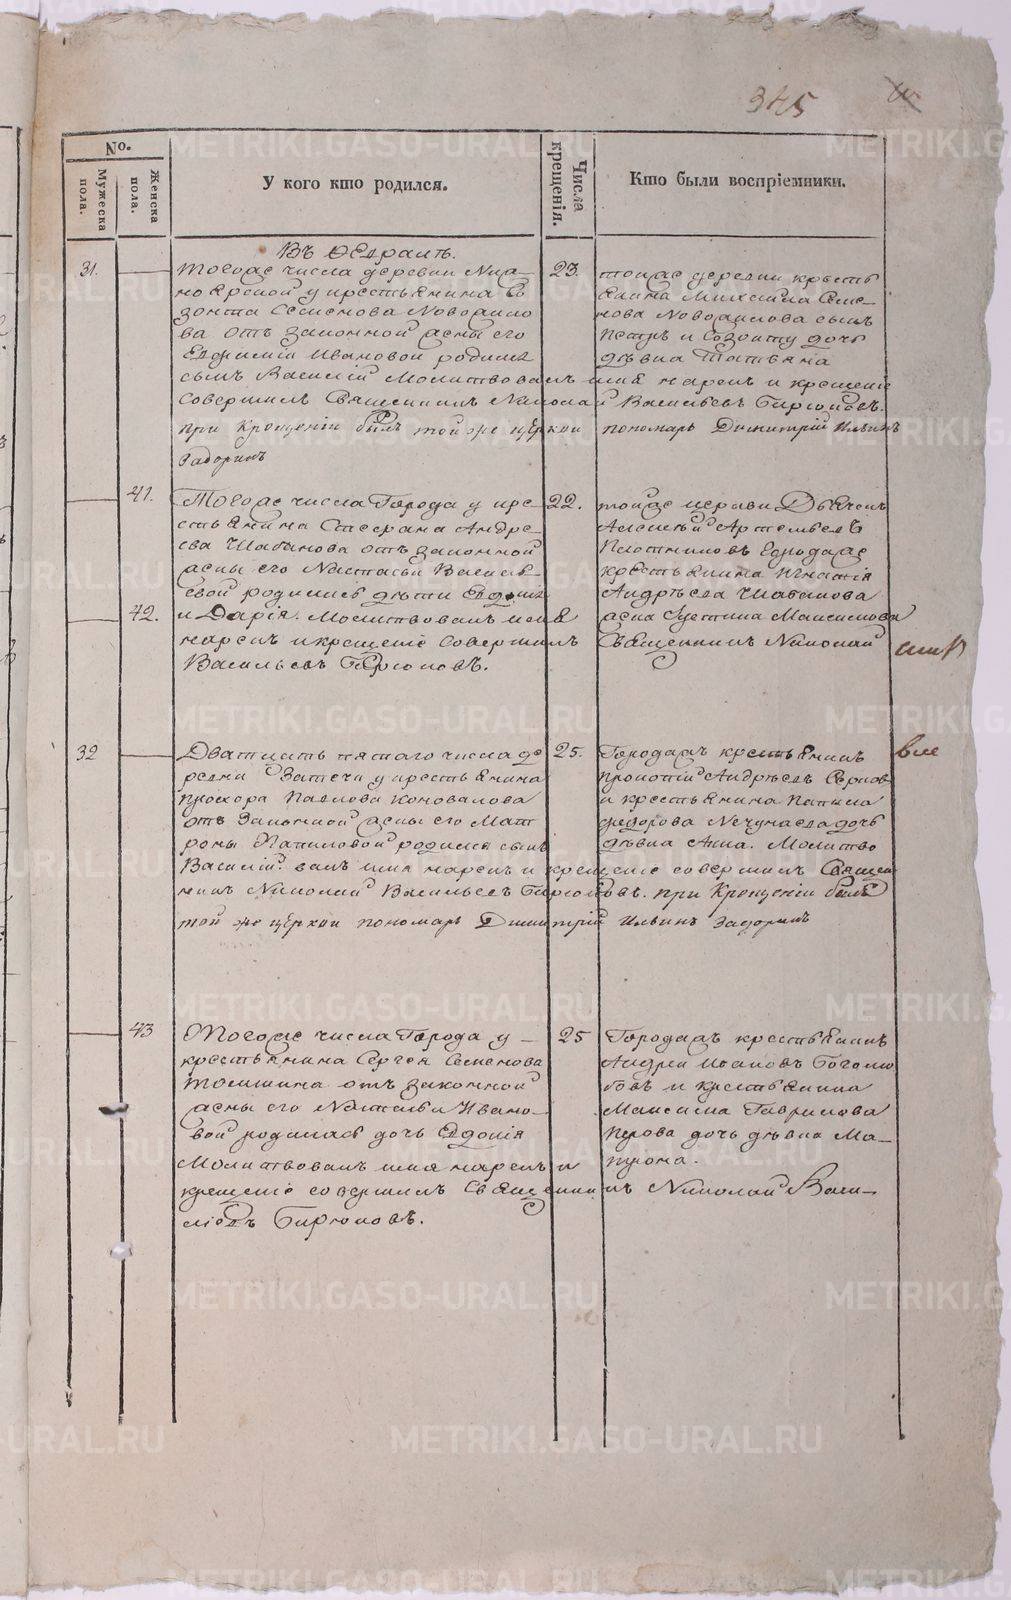 345
No.
Мужеска пола.
Женска пола.
У кого кто родился.
Числа крещенія.
Кто были воспріемники.
Въ Февралѣ.
31.
тогоже числа деревни
у крестьянина Со
зонта Семенова Новожило
ва отъ законной жены его
Евфиміи Ивановой родился
сынъ Василій Молитвовалъ имя нарекъ и крещеніе
совершилъ Священникъ Николай Васильевъ Бирюковъ.
при Крещеніи былъ той же церкви пономарь Димитрій Ильинъ
Задоринъ
23.
тоиже деревни крестья
янина Михаила Семе-
нова Новожилова сынъ
Петръ и Созонту дочь
дѣвка Татьяна
41.
Тогоже числа Города у кре-
стьянина Стефана Андре-
ева Шабанова отъ законной
жены его Настасьи Василь-
евой родились дѣти Евдокія
42.
и Дарія. Молитвовалъ имя
нарекъ и крещеніе совершилъ
Васильевъ Бирюковъ.
22.
тойже церкви Дьячекъ
Алексѣй Артемьевъ
Плотниковъ Городаже
крестьянина Игнатія
Андрѣева Шабанова
жена Устинья Максимова
Священникъ Николай
32
Дватцать пятаго числа де
ревни Затечи у крестьянина
Прохора Павлова Коновалова
отъ Законной жены его Мат
роны Паниловой родился сынъ
Василій. валъ имя нарекъ и крещеніе совершилъ Священ
никъ Николай Васильевъ Бирюковъ. при Крещеніи былъ
той же церкви пономарь Димитрій Ильинъ Задоринъ
25.
Городажъ крестьянинъ
Прокопій Андрѣевъ
и крестьянина
Федорова дочь
дѣвка Анна. Молитво
43
Тогоже числа Города у
крестьянина Сергея Семенова
отъ законной
жены его Натальи Ивано-
вой родилась дочь Евдокія
Молитвовалъ имя нарекъ и
крещеніе совершилъ Священникъ Николай Васи-
ліевъ Бирюковъ.
25
Городажъ крестьянинъ
Андрей Ивановъ Боголю
бовъ и крестьянина
Максима Гаврилова
Перова дочь дѣвка Ма-
трона.
METRIKI.GASO-URAL.RU